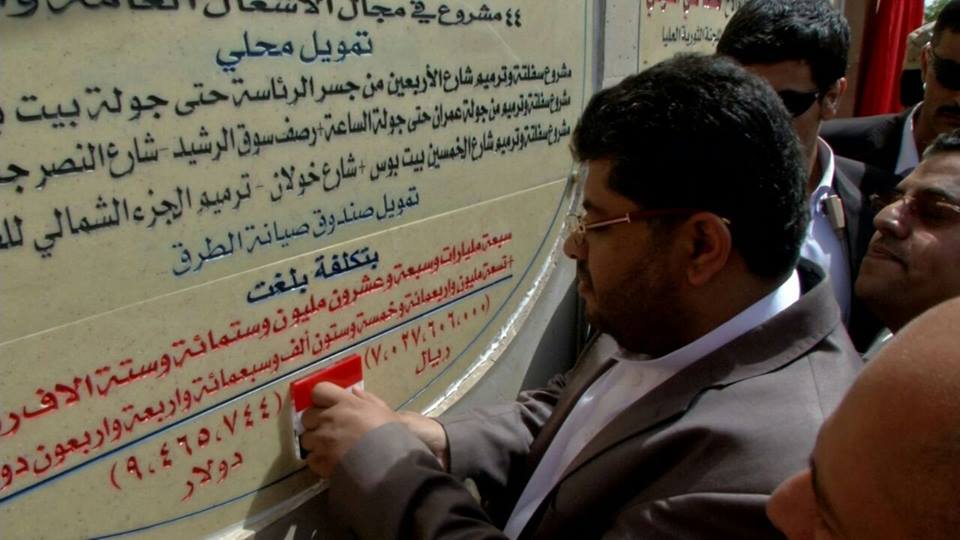 ٤٤ مشروع في مجال الأشغال العامة
اللجنة الثورية العليا
تمويل محلي
مشروع سفلتة وترميم شارع الأربعين من جسر الرئاسة حتى جولة بيت
مشروع سفلتة وترميم من جولة عمران حتى جولة الساعة+رصف سوق الرشيد - شارع النصر
مشروع سفلتة وترميم شارع الخمسين بيت بوس +شارع خولان - ترميم الجزء الشمالي
تمويل صندوق صيانة الطرق
بتكلفة بلغت
سبعة مليارات وسبعة وعشرون مليون وستمائة وستة الاف
(٧،٠٢٧،٦٠٦،٠٠٠) ريال
+تسعة مليون واربعمائة وخمسة وستون ألف وسبعمائة واربعة واربعون
(٩،٤٦٥،٧٤٤) دولار